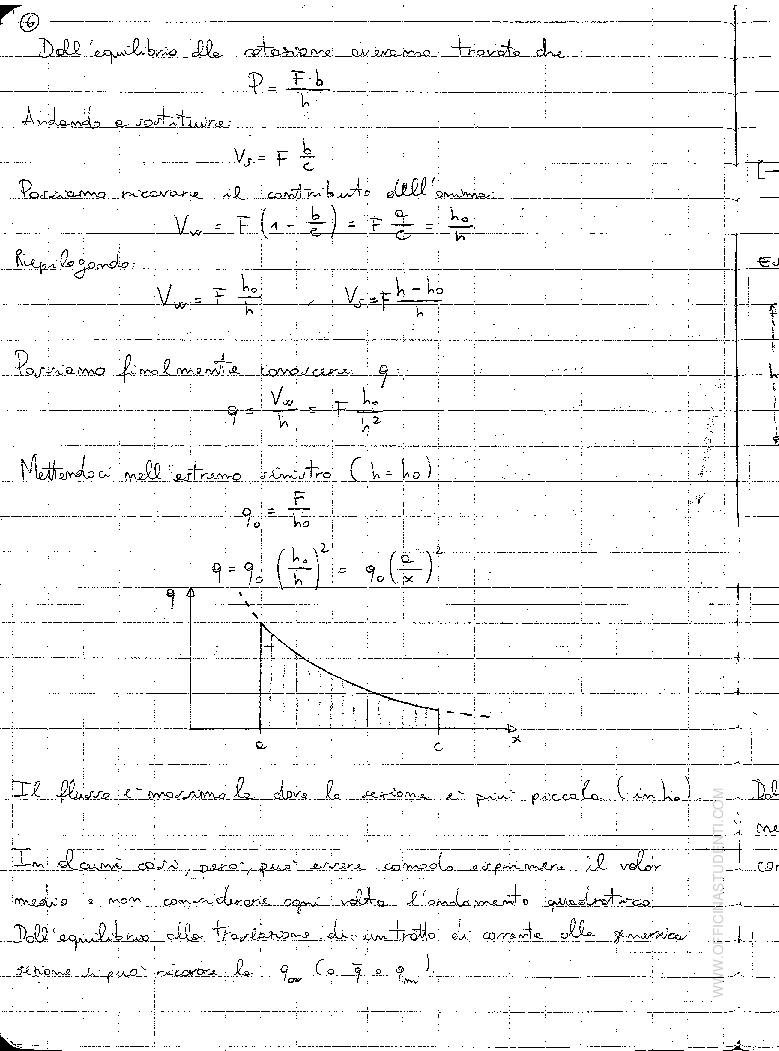 6
Dall'equilibrio alla rotazione avevamo trovato che
P = F·b / h
Andando a sostituire:
Vs = F b/c
Possiamo ricavare il contributo dell'anima:
Vw = F (1 - b/c) = F a/c = h0/h
Riepilogando:
Vw = F h0/h , Vs = F h-h0/h
Possiamo finalmente conoscere q
q = Vw/h = F h0/h²
Mettendoci nell'estremo sinistro (h = h0)
q0 = F/h0
q = q0 (h0/h)² = q0 (a/x)²
q
a c x
Il flusso è massimo là dove la sezione è più piccola (in h0)
In alcuni casi, però, può essere comodo esprimere il valor
medio e non considerare ogni volta l'andamento quadratico.
Dall'equilibrio alla traslazione di un tratto di corrente alla generica
sezione si può ricavare la qav (o q̄ o qm).
Es
h
Dal
me
con
WWW.OFFICINASTUDENTI.COM